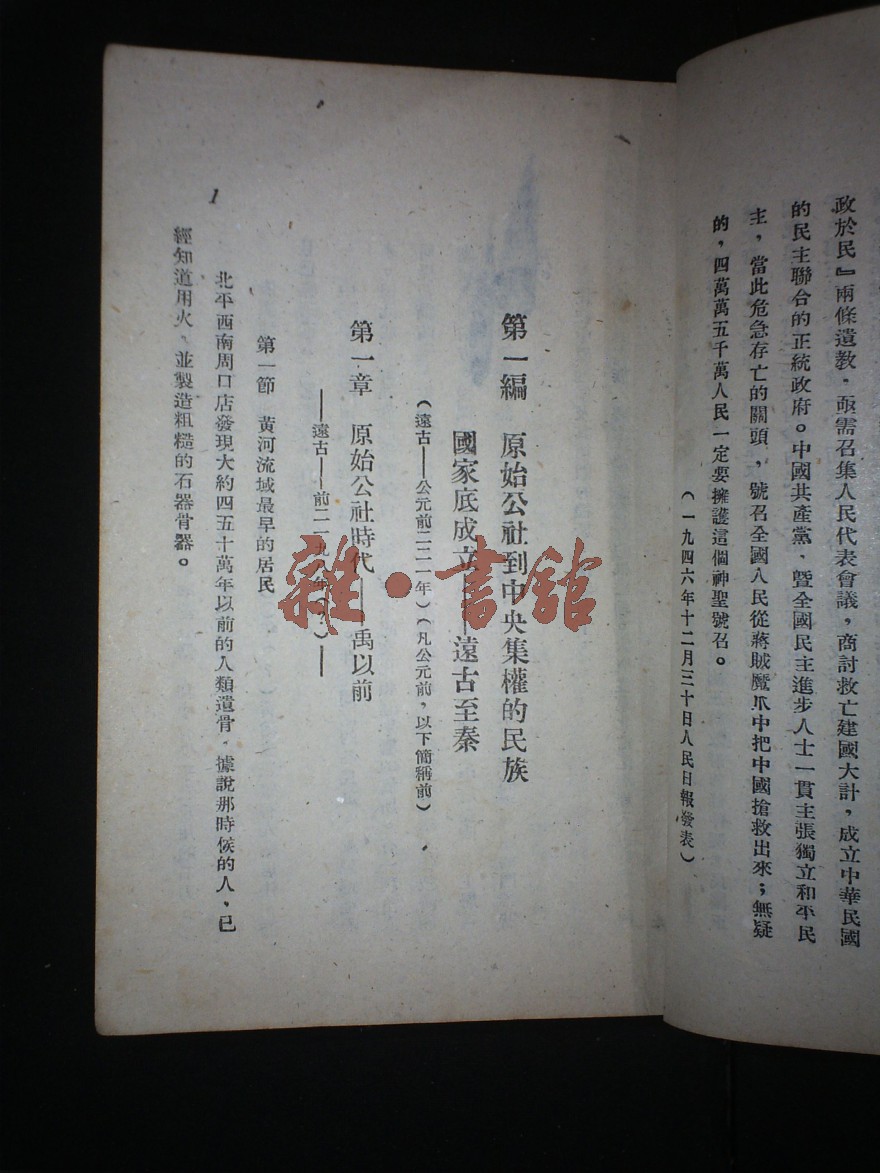 政於民』兩條遺教。亟需召集人民代表會議，商討救亡建國大計，成立中華民國
的民主聯合的正統政府。中國共產黨，暨全國民主進步人士一貫主張獨立和平民
主，當此危急存亡的關頭，號召全國人民從蔣賊魔爪中把中國搶救出來；無疑
的，四萬萬五千萬人民一定要擁護這個神聖號召。
（一九四六年十二月三十日人民日報發表）
第一編　原始公社到中央集權的民族
國家底成立——遠古至秦
（遠古——公元前二二一年）（凡公元前，以下簡稱前）
第一章　原始公社時代——禹以前
——遠古——前二一九八年（？）——
第一節　黃河流域最早的居民
北平西南周口店發現大約四五十萬年以前的人類遺骨。據說那時候的人、已
經知道用火、並製造粗糙的石器骨器。
1
雜·書館